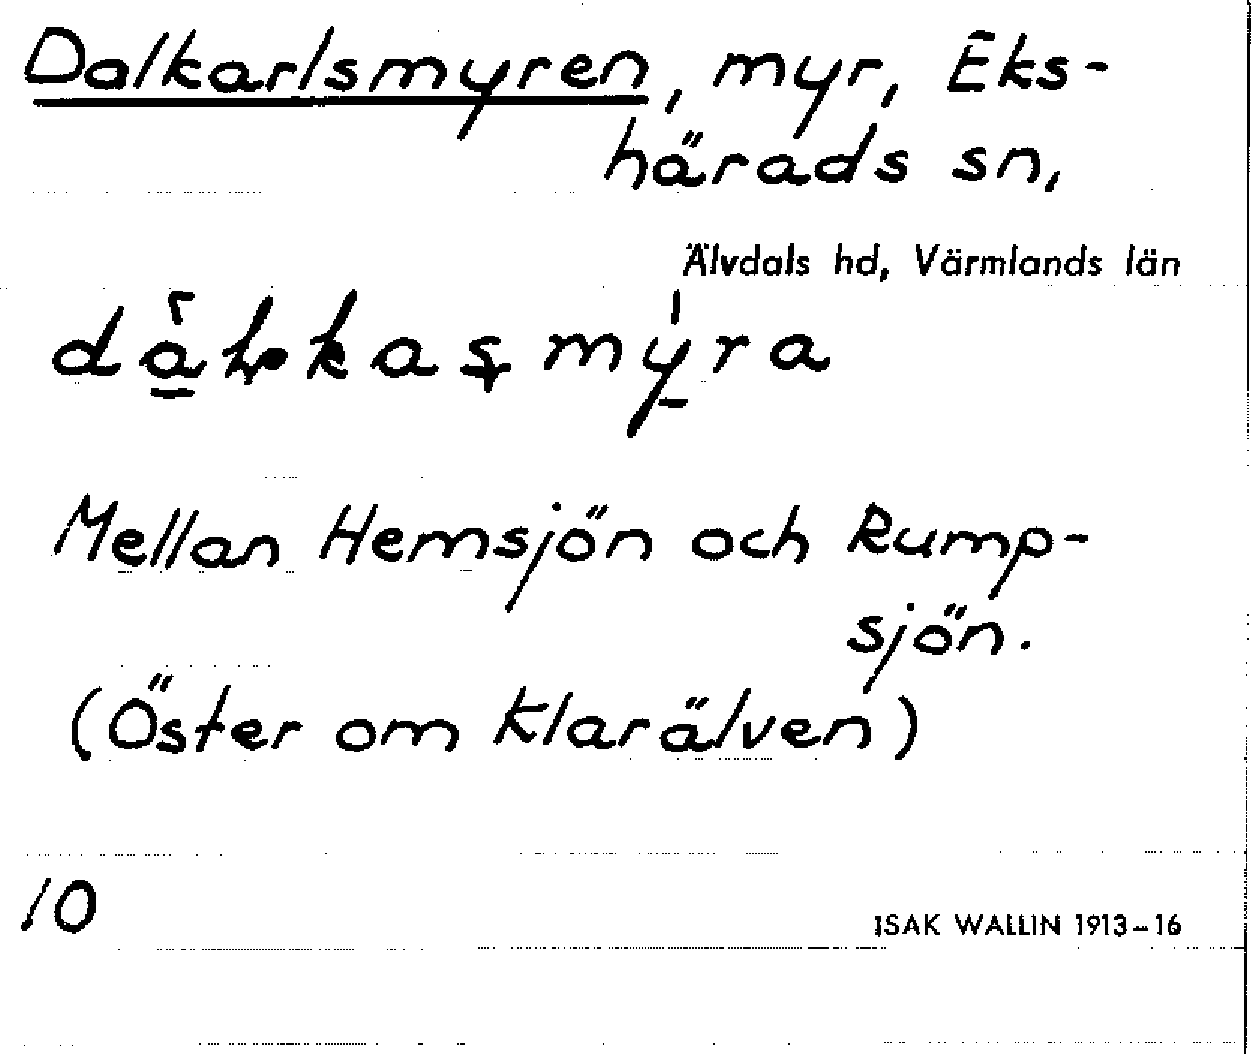 Dalkarlsmyren, myr, Eks-
härads sn,
Älvdals hd, Värmlands län
Mellan Hemsjön och Rump-
sjön.
(Öster om Klarälven)
10
ISAK WALLIN 1913-16